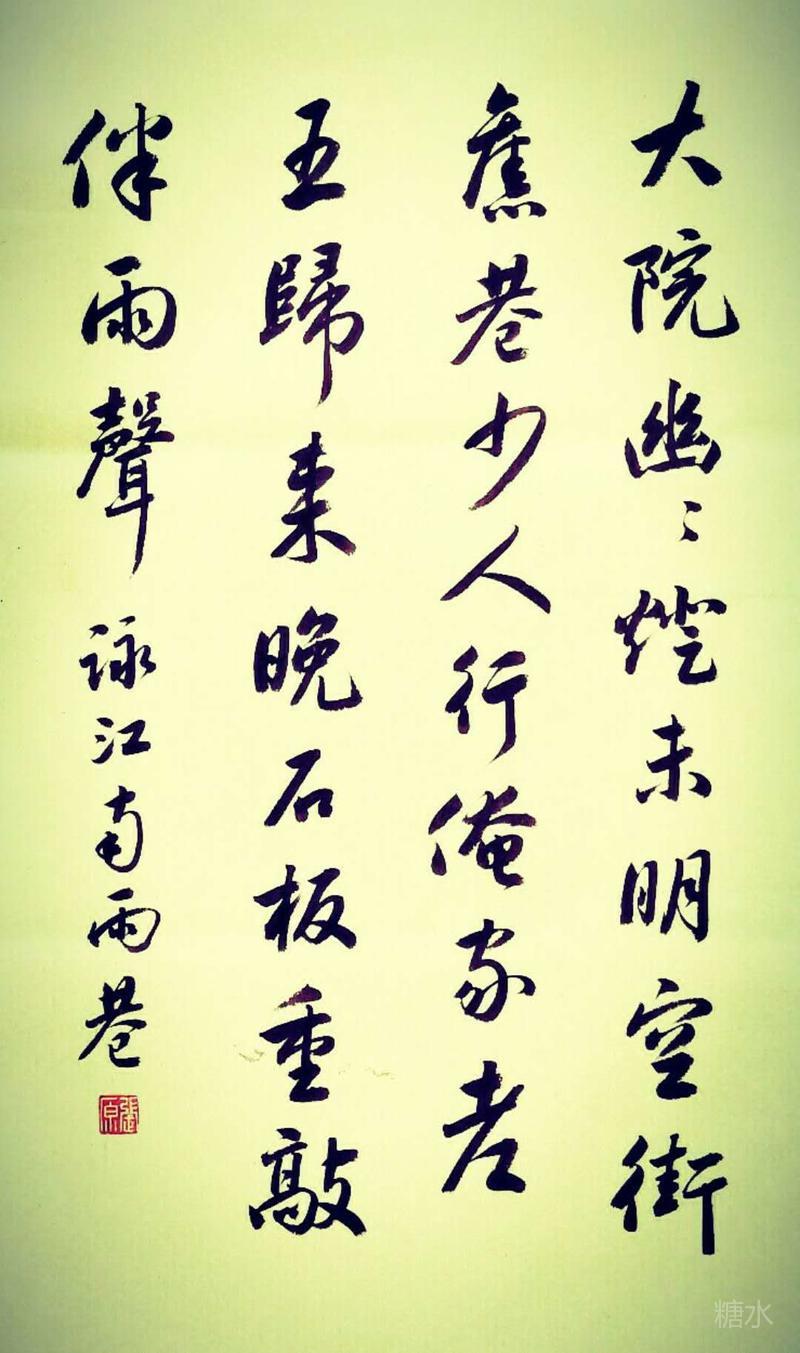 大院幽〻燈未明空街
舊巷少人行俺家老
五歸來晚石板重敲
伴雨聲
詠江南雨巷
張原
糖水